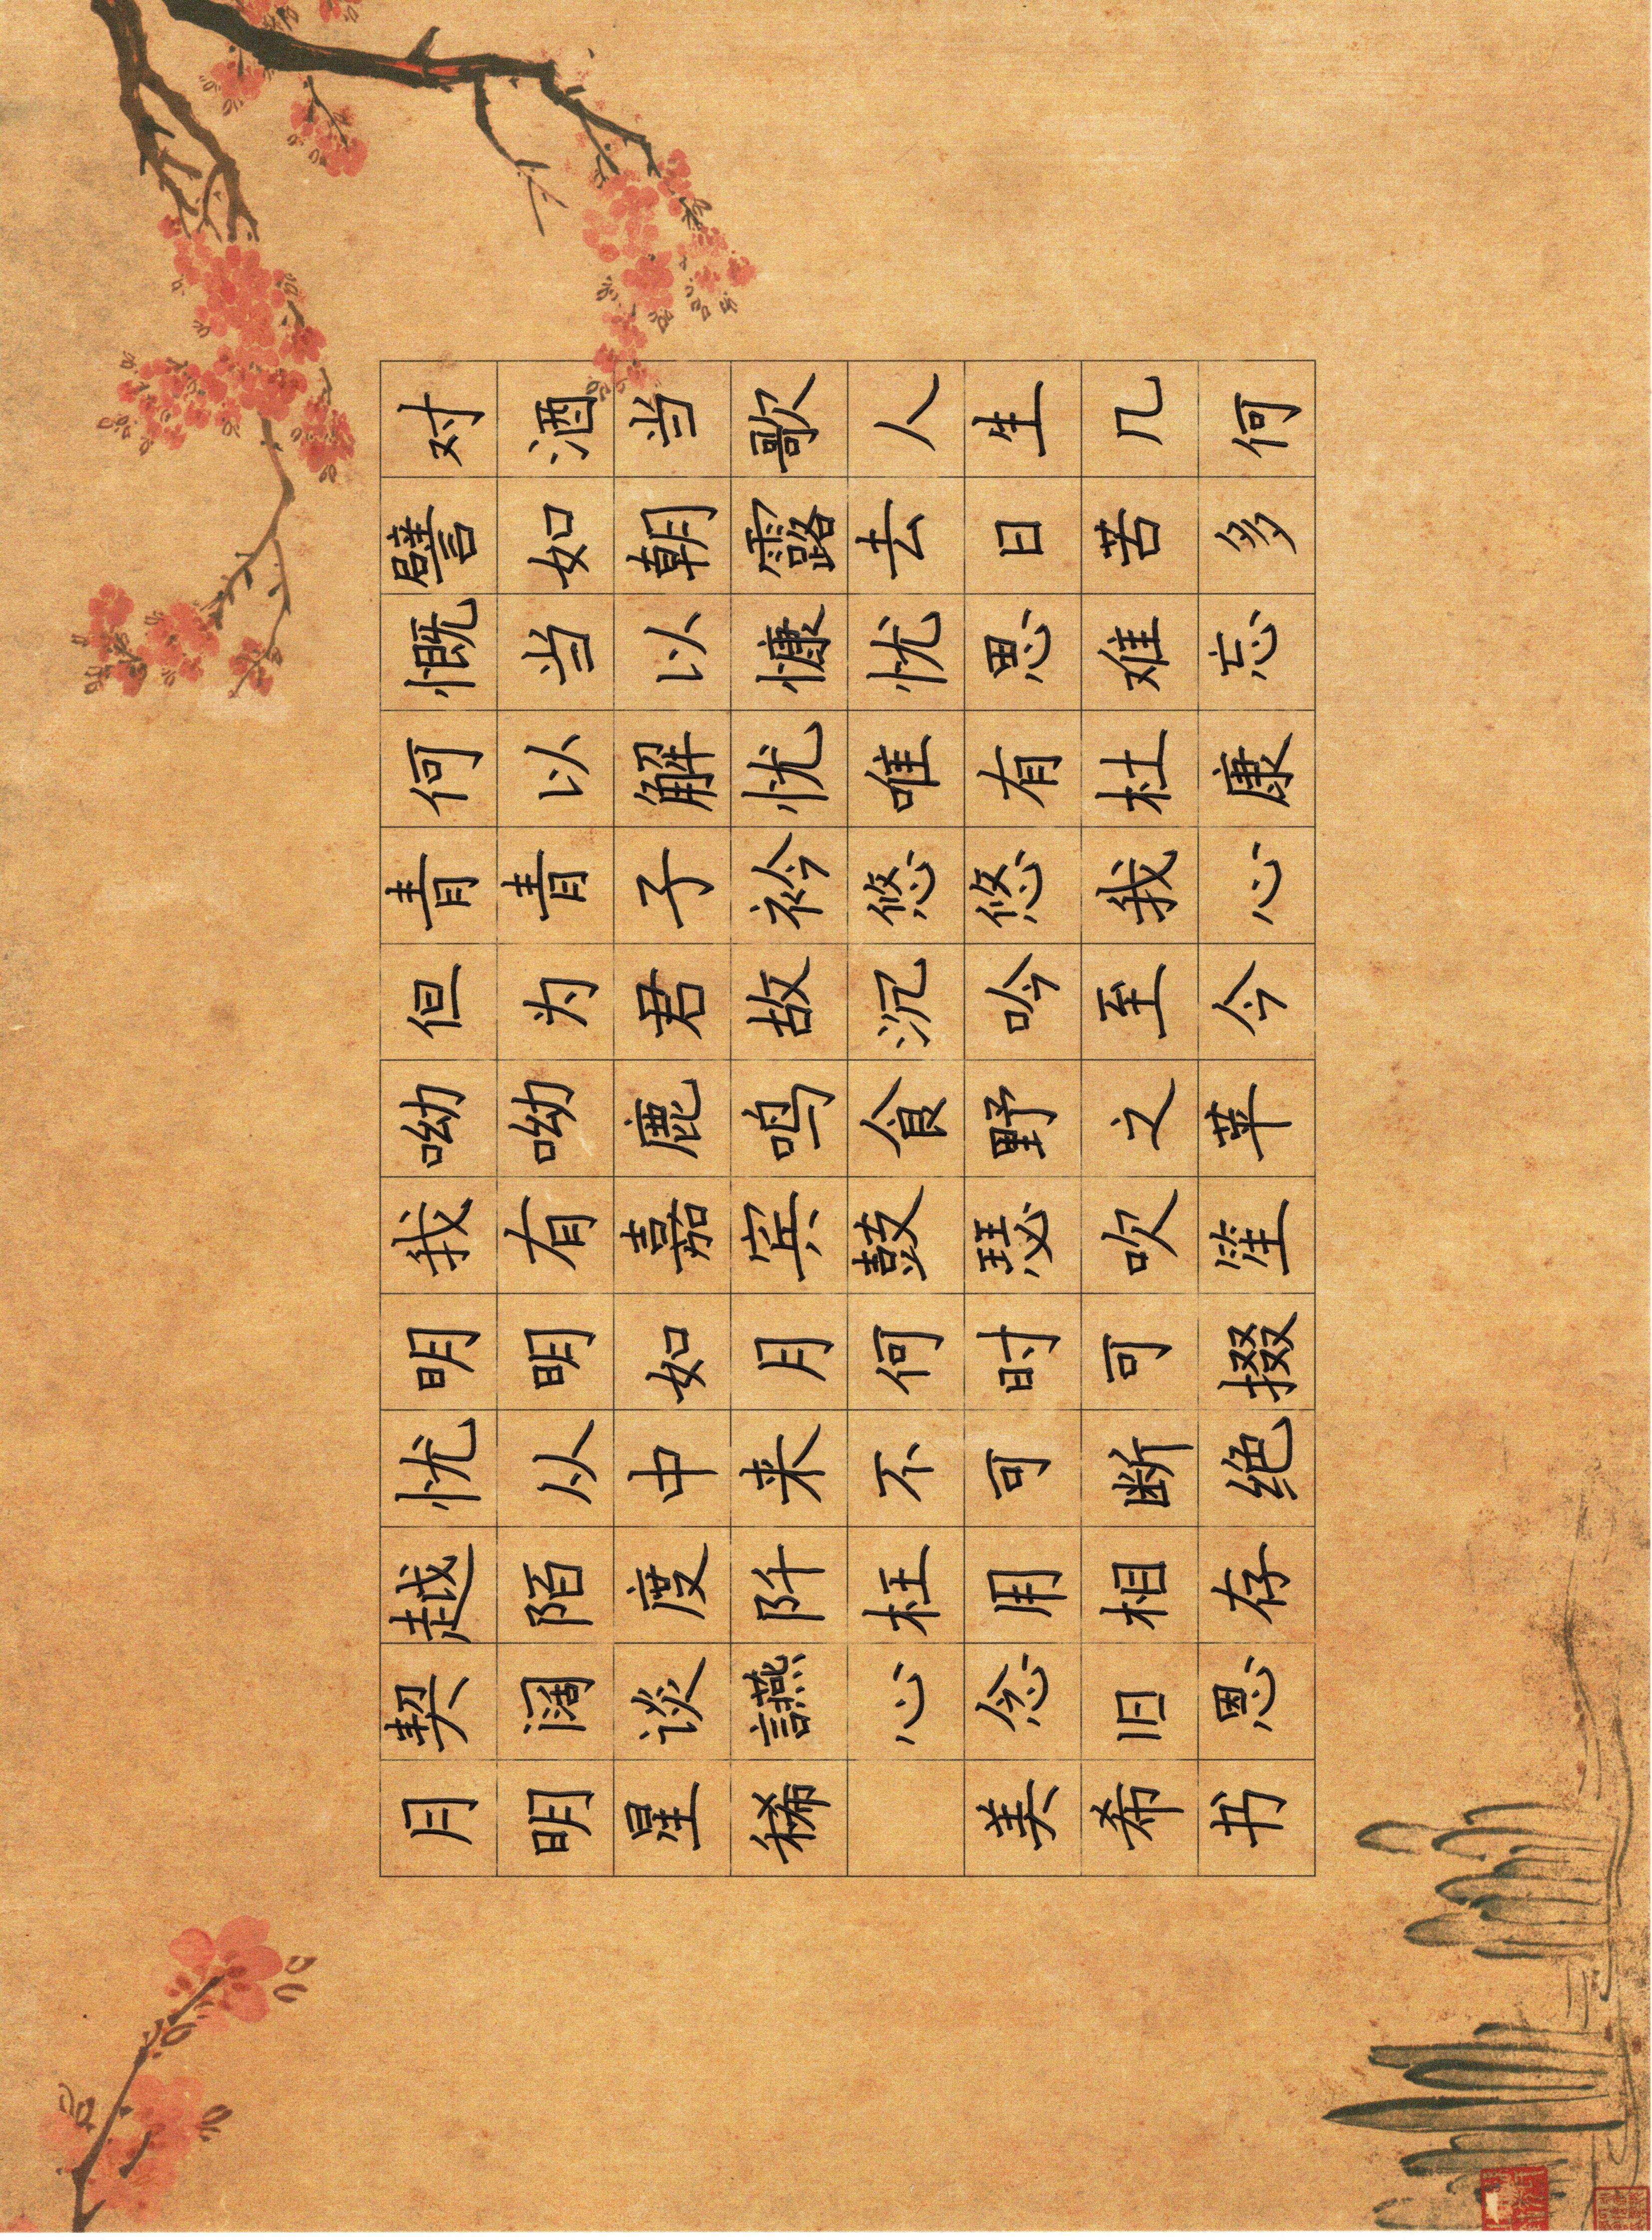 对酒当歌人生几何
譬如朝露去日苦多
慨当以慷忧思难忘
何以解忧唯有杜康
青青子衿悠悠我心
但为君故沉吟至今
呦呦鹿鸣食野之苹
我有嘉宾鼓瑟吹笙
明明如月何时可掇
忧从中来不可断绝
越陌度阡枉用相存
契阔谈讌心念旧恩
月明星稀 美希书